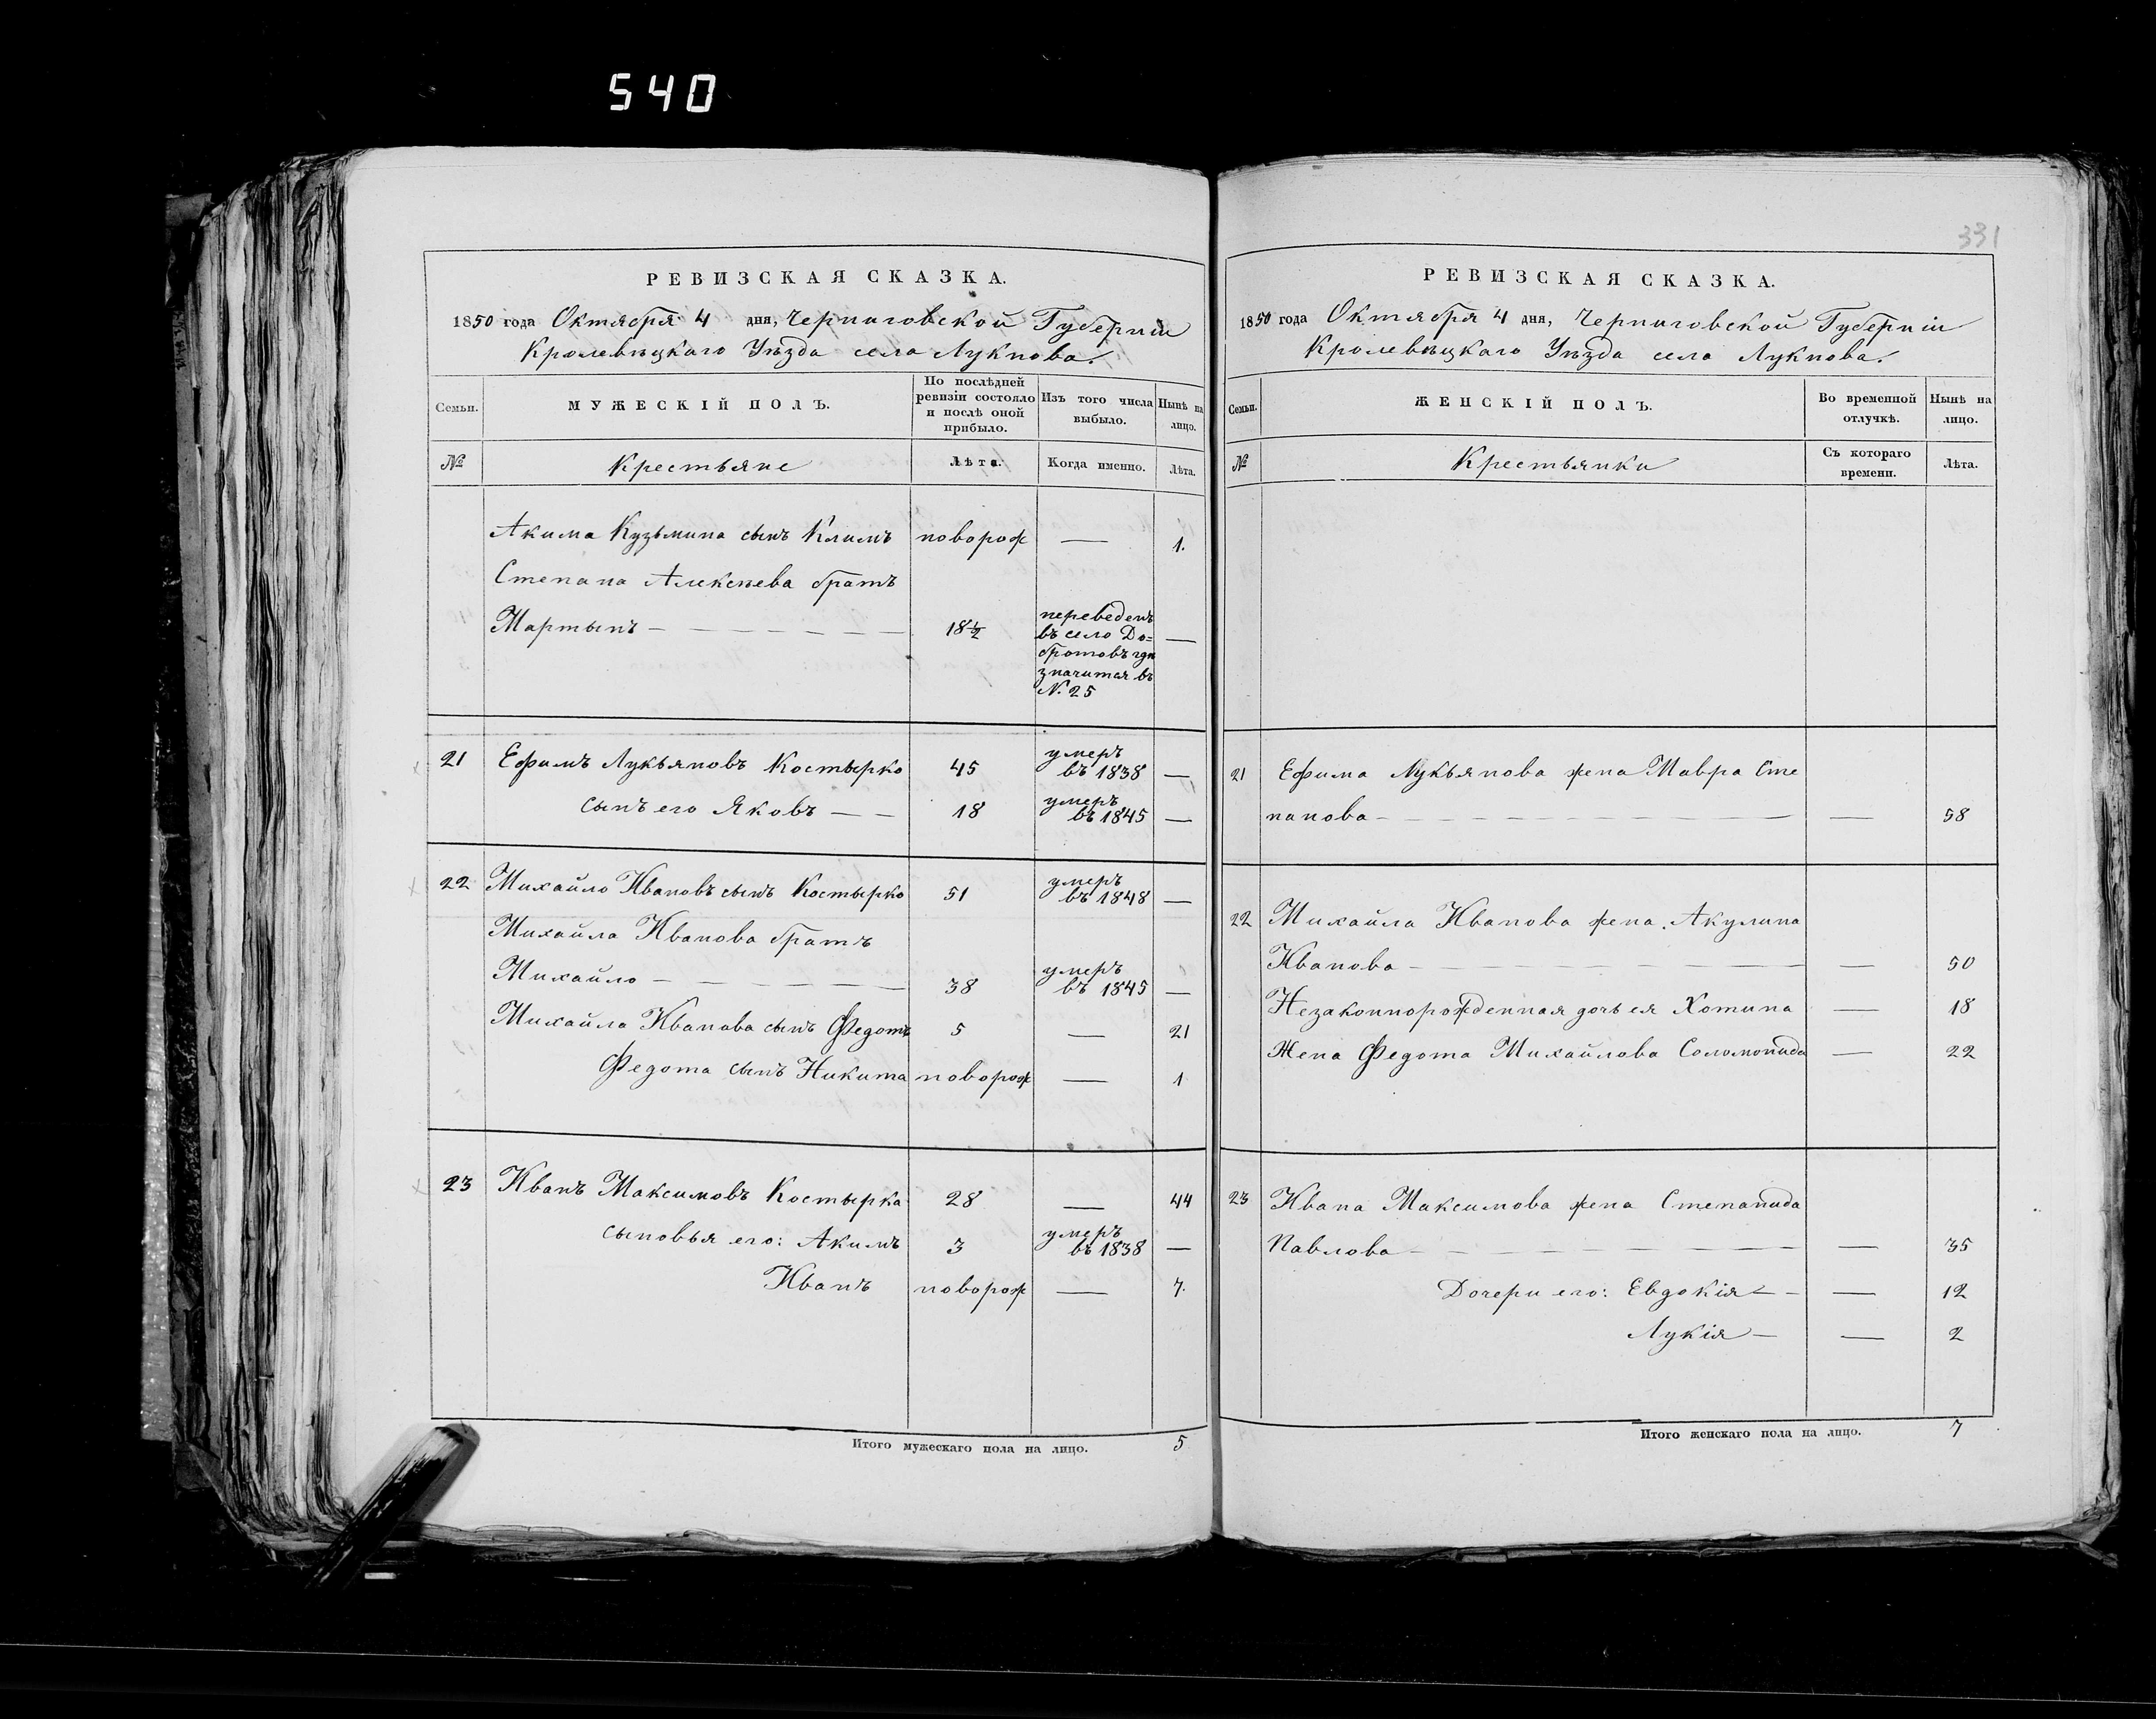 540
РЕВИЗСКАЯ СКАЗКА.
1850 года Октября 4 дня, Черниговской Губерніи
Кролевѣцкаго Уѣзда села Лукнова.
Семьи.
МУЖЕСКІЙ ПОЛЪ.
По послѣдней ревизіи состояло и послѣ оной прибыло.
Изъ того числа выбыло.
Нынѣ на лицо.
№
Крестьяне
Лѣта.
Когда именно.
Лѣта.
Акима Кузьмина сынъ Климъ новорож — 1.
Степана Алексѣева братъ
Мартынъ — 18½ переведенъ
въ село До=
бротовъ гдѣ
значится въ
№. 25
21 Ефимъ Лукьяновъ Костырко 45 умеръ въ 1838 —
сынъ его Яковъ — 18 умеръ въ 1845 —
22 Михайло Ивановъ сынъ Костырко 51 умеръ въ 1848 —
Михайла Иванова братъ
Михайло — 38 умеръ въ 1845 —
Михайла Иванова сынъ Федотъ 5 — 21
Федота сынъ Никита новорож — 1
23 Иванъ Максимовъ Костырка 28 — 44
сыновья его: Акимъ 3 умеръ въ 1838 —
Иванъ новорож — 7.
Итого мужескаго пола на лицо. 5
331
РЕВИЗСКАЯ СКАЗКА.
1850 года Октября 4 дня, Черниговской Губерніи
Кролевѣцкаго Уѣзда села Лукнова.
Семьи.
ЖЕНСКІЙ ПОЛЪ.
Во временной отлучкѣ.
Нынѣ на лицо.
№
Крестьянки
Съ котораго времени.
Лѣта.
21 Ефима Лукьянова жена Мавра Сте
панова — — 58
22 Михайла Иванова жена Акулина
Иванова — — 50
Незаконнорожденная дочь ея Хотина — 18
Жена Федота Михайлова Соломонида — 22
23 Ивана Максимова жена Степанида
Павлова — — 35
Дочери его: Евдокія — — 12
Лукія — — 2
Итого женскаго пола на лицо. 7